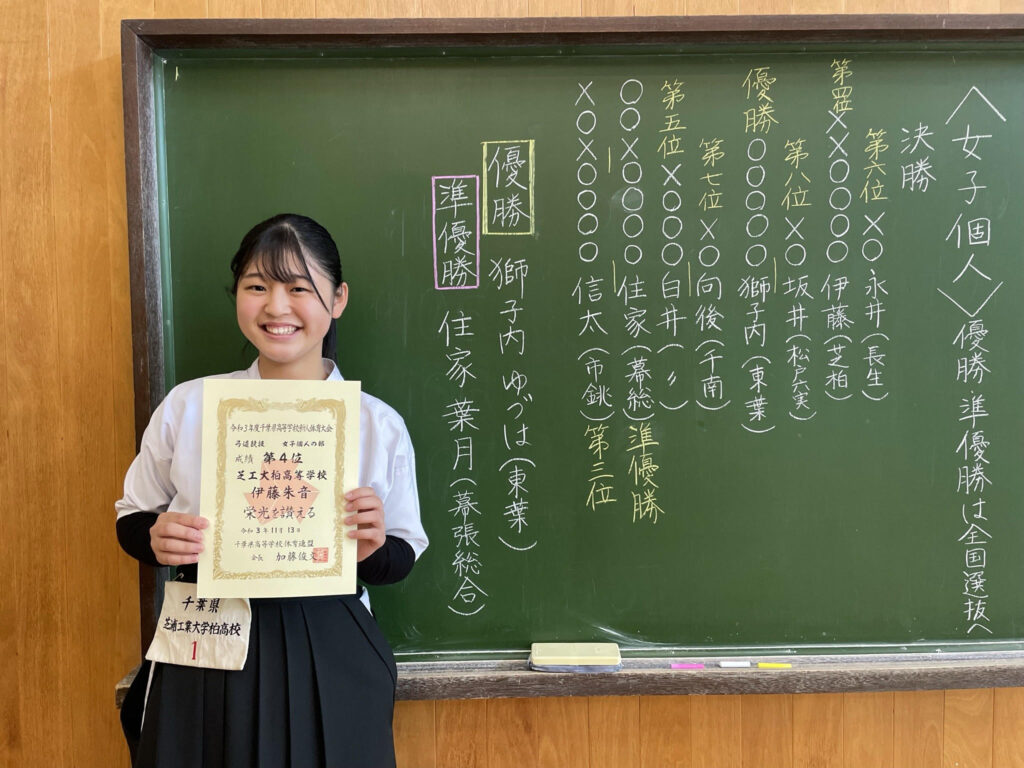 〈女子個人〉優勝 準優勝は全国選抜へ
決勝
第六位 ×○ 永井(長生)
第四位 ××○○○○ 伊藤(芝柏)
第八位 ×○ 坂井(松戸六実)
優勝 ○○○○○ 獅子内(東葉)
第七位 ×○ 向後(千南)
第五位 ×○○○ 白井(〃)
○○×○○○○ 住家(幕総)準優勝
×○×○○○○ 信太(市銚)第三位
優勝 獅子内 ゆづは(東葉)
準優勝 住家 葉月(幕張総合)
令和3年度千葉県高等学校新人体育大会
弓道競技 女子個人の部
成績 第4位
芝工大柏高等学校
伊藤朱音
栄光を讃える
令和3年11月13日
千葉県高等学校体育連盟
会長 加藤俊文
千葉県
芝浦工業大学柏高校
1